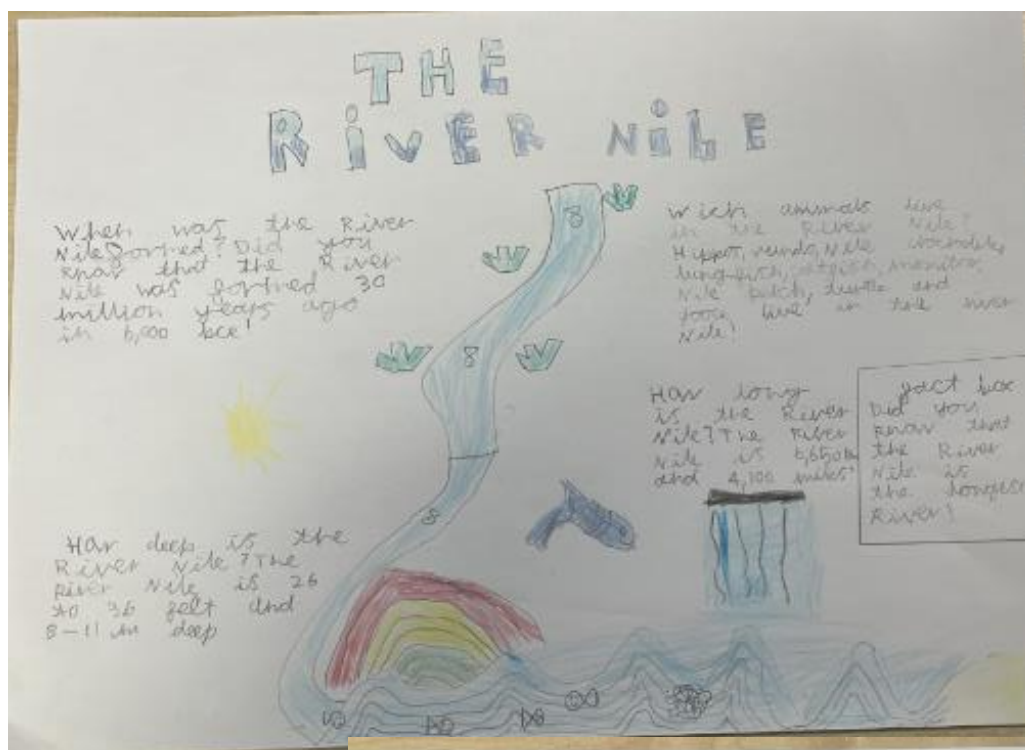 THE
RiVER NiLE
When was the River
Nile formed? Did you
know that the River
Nile was formed 30
million years ago
in 6,000 bce!
Which animals live
in the River Nile?
Nile
monitor,
Nile and
live in the river
Nile!
How long
is the River
Nile? The River
Nile is 6,650km
and 4,100 miles!
fact box
Did you
know that
the River
Nile is
the longest
River!
How deep is the
River Nile? The
River Nile is 26
to 36 feet and
8-11 m deep